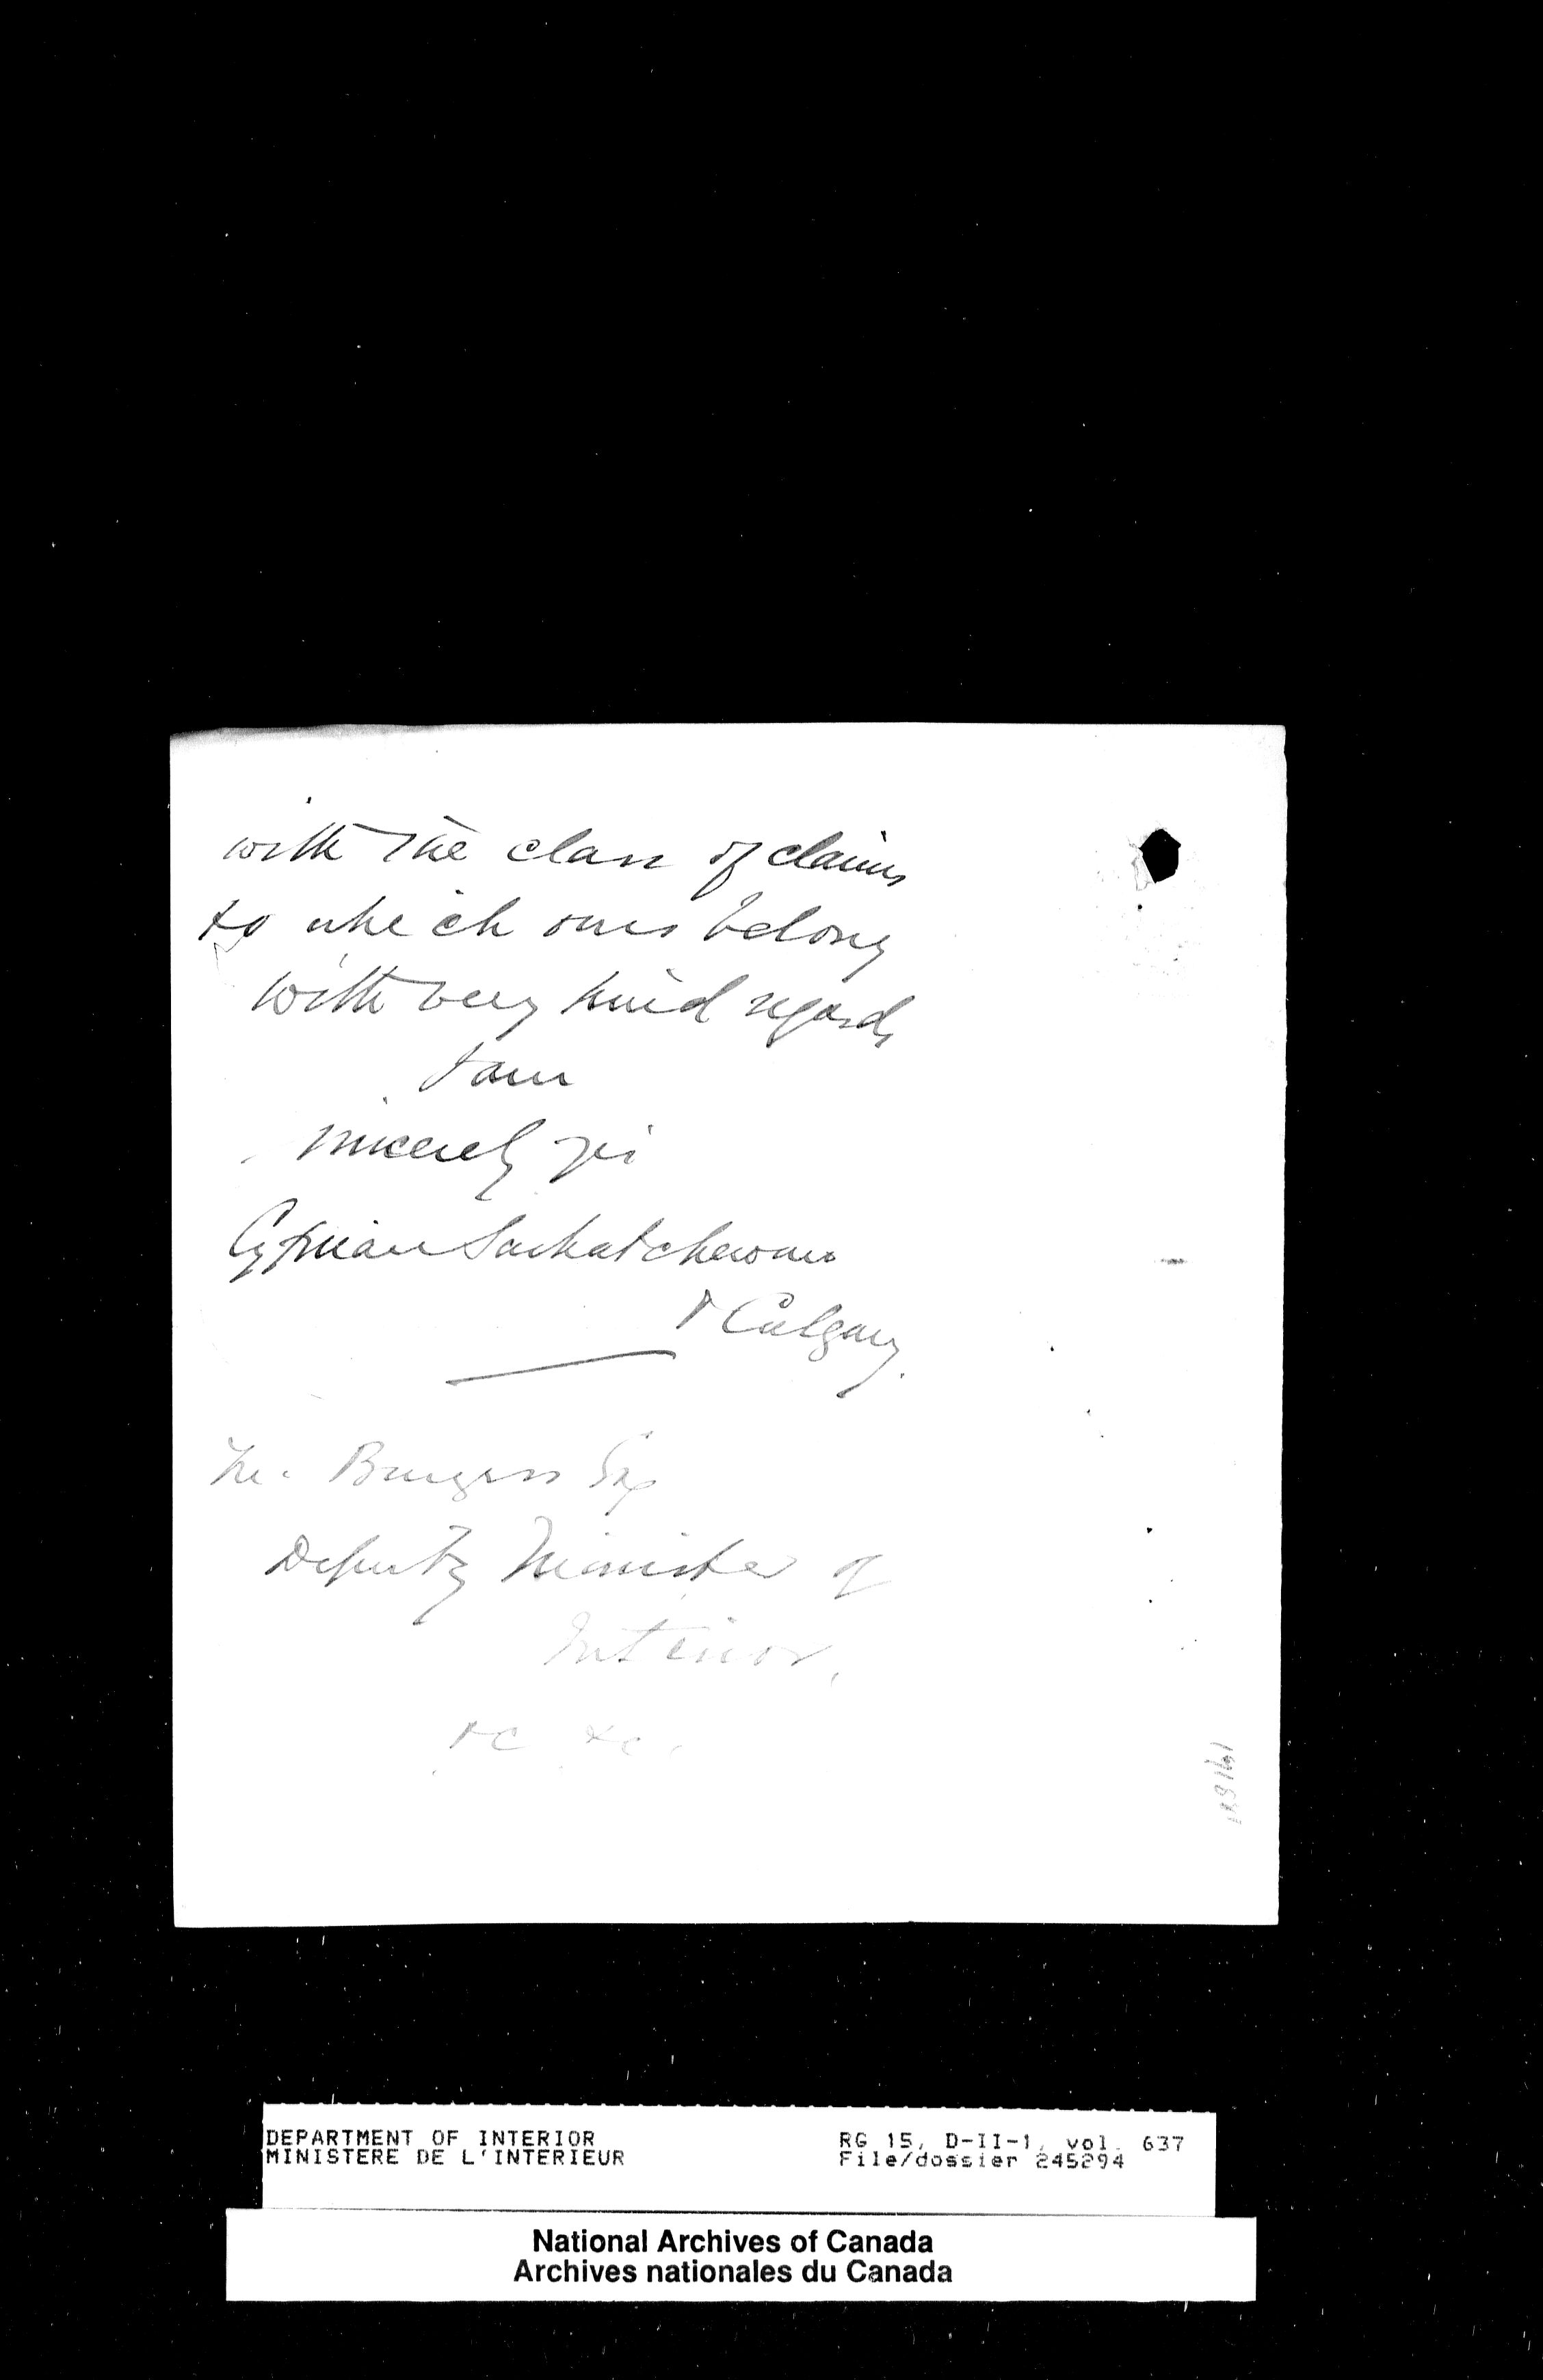 with the class of claims
to which ours belong
With very kind regards
I am
sincerely yrs
Cyprian Saskatchewan
& Calgary.
Burgess Esq
Deputy Minister of
Interior,
&c &c.
DEPARTMENT OF INTERIOR
MINISTERE DE L'INTERIEUR
RG 15, D-II-1, vol. 637
File/dossier 245294
National Archives of Canada
Archives nationales du Canada